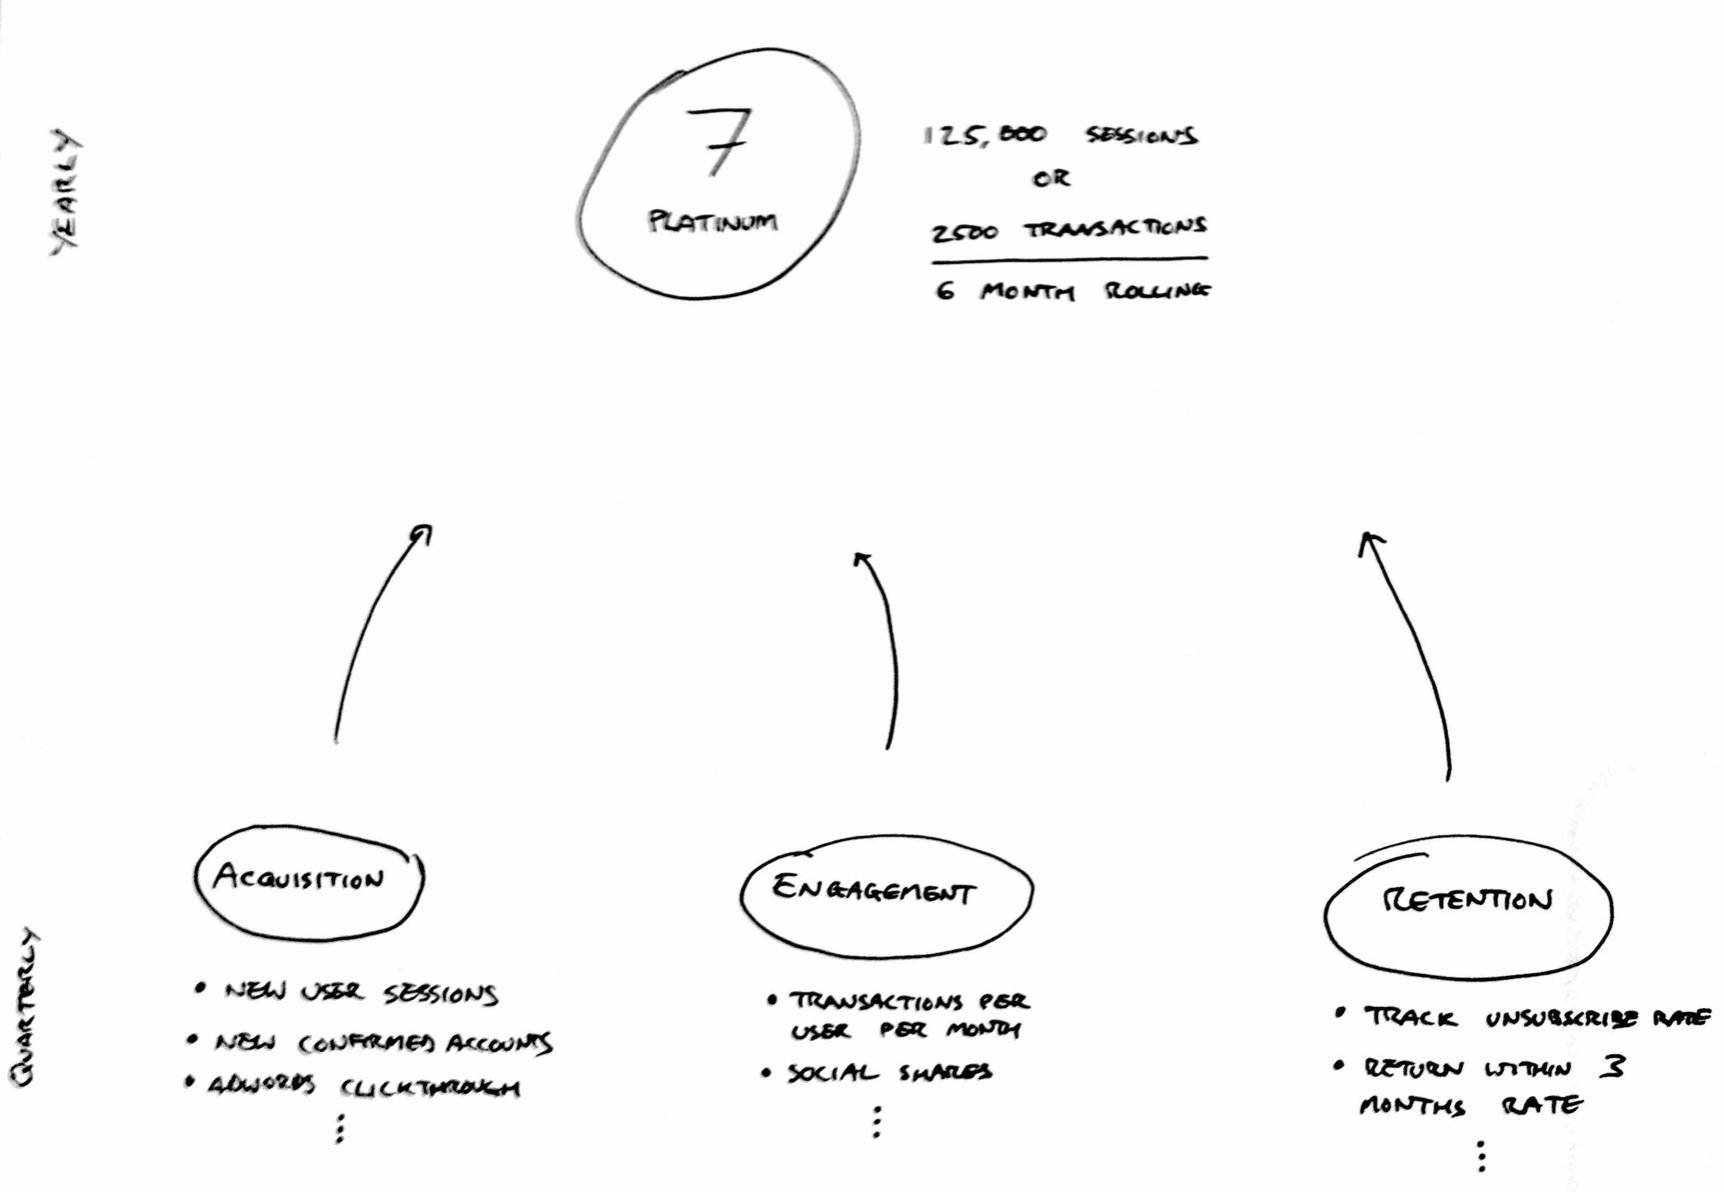 YEARLY
7
PLATINUM
125,000 SESSIONS
OR
2500 TRANSACTIONS
6 MONTH ROLLING
QUARTERLY
ACQUISITION
• NEW USER SESSIONS
• NEW CONFIRMED ACCOUNTS
• ADWORDS CLICKTHROUGH
⋮
ENGAGEMENT
• TRANSACTIONS PER
USER PER MONTH
• SOCIAL SHARES
⋮
RETENTION
• TRACK UNSUBSCRIBE RATE
• RETURN WITHIN 3
MONTHS RATE
⋮